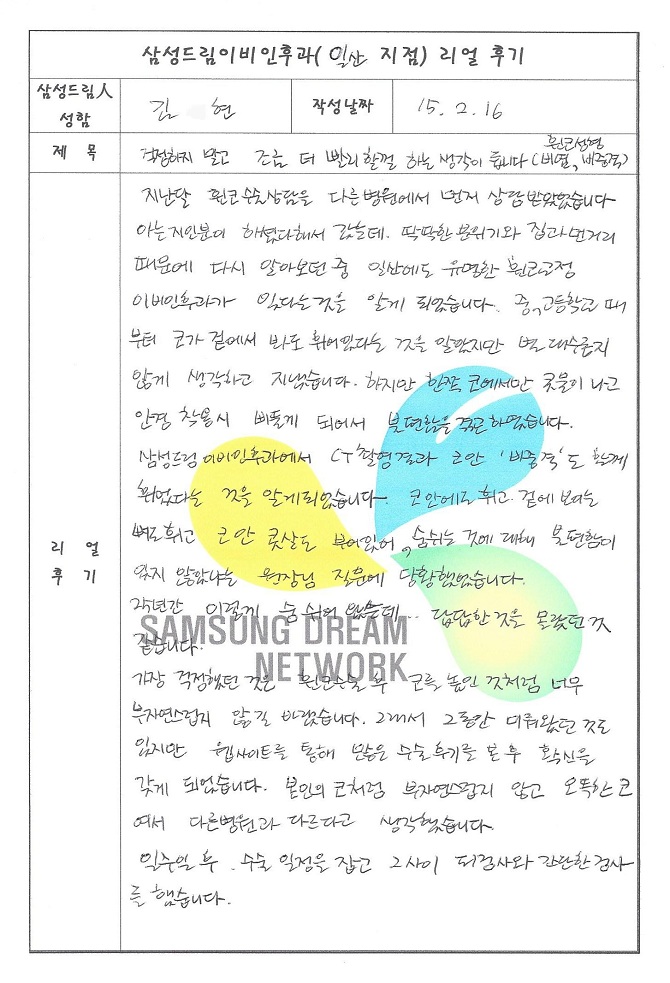 삼성드림이비인후과( 일산 지점) 리얼 후기
삼성드림人 성함
김 현
작성날짜
15. 2. 16
제 목
휜코성형
걱정하지 말고 조금 더 빨리할걸 하는 생각이 듭니다 (비염, 비중격)
리 얼 후 기
지난달 휜코수술상담을 다른병원에서 먼저 상담받았었습니다
아는지인분이 하셨다해서 갔는데. 딱딱한 분위기와 집과 먼거리
때문에 다시 알아보던 중 일산에도 유명한 휜코교정
이비인후과가 있다는것을 알게 되었습니다. 중,고등학교 때
부터 코가 겉에서 봐도 휘어있다는 것을 알았지만 별 대수롭지
않게 생각하고 지냈습니다. 하지만 한쪽 코에서만 콧물이 나고
안경 착용시 삐뚤게 되어서 불편함을 겪곤 하였습니다.
삼성드림이비인후과에서 CT촬영결과 코안 '비중격'도 함께
휘었다는 것을 알게되었습니다. 코안에도 휘고. 겉에 보이는
뼈도휘고 코안 콧살도 부어있어, 숨쉬는 것에 대해 불편함이
있지 않았냐는 원장님 질문에 당황했었습니다.
25년간 이렇게 숨 쉬어 왔는데... 답답한것을 몰랐던것
같습니다.
SAMSUNG DREAM
NETWORK
가장 걱정했던 것은 휜코수술 후 코를 높인 것처럼 너무
부자연스럽지 않길 바랬습니다. 그래서 그동안 미뤄왔던 것도
있지만 웹사이트를 통해 많은 수술후기를 본 후 확신을
갖게 되었습니다. 본인의 코처럼 부자연스럽지 않고 오똑한 코
여서 다른병원과 다르다고 생각했습니다.
일주일 후. 수술 일정을 잡고 그사이 피검사와 간단한 검사
를 했습니다.